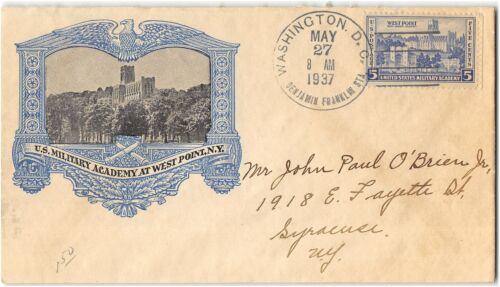 WASHINGTON, D.C.
MAY
27
8 AM
1937
BENJAMIN FRANKLIN STA.
WEST POINT
U.S. POSTAGE
FIVE CENTS
5 UNITED STATES MILITARY ACADEMY 5
U.S. MILITARY ACADEMY AT WEST POINT, N.Y.
Mr John Paul O'Brien Jr,
1918 E. Fayette St.
Syracuse
NY.
1.50